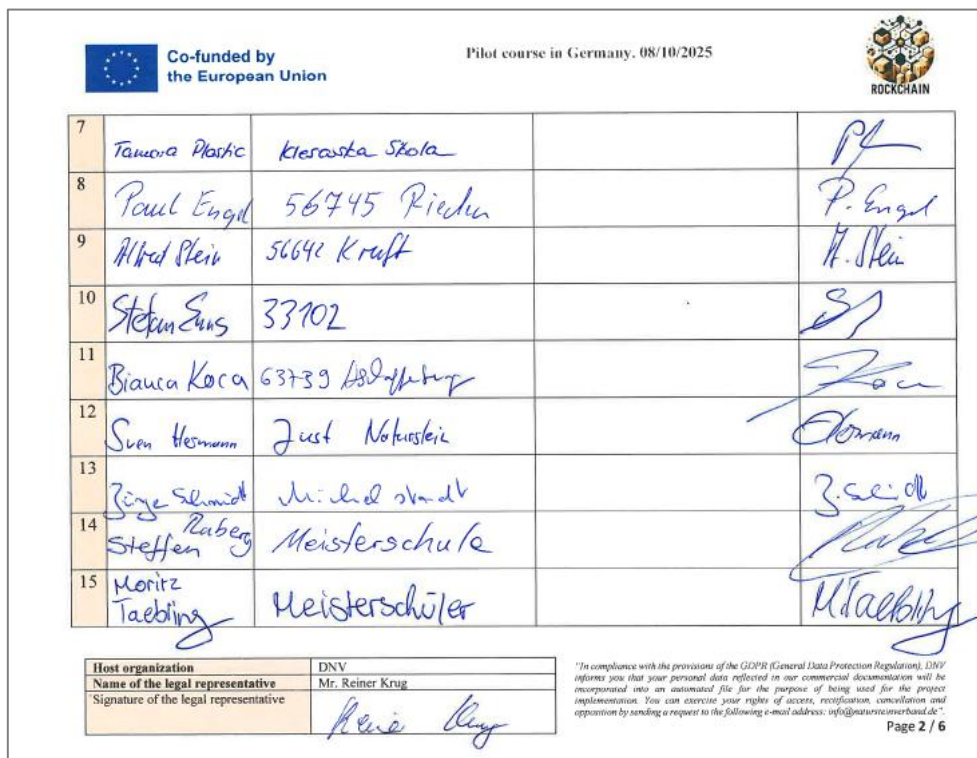 Co-funded by
the European Union
Pilot course in Germany. 08/10/2025
ROCKCHAIN
7 Tamara Plastic Klesarska Škola
8 Paul Engel 56745 Rieden P. Engel
9 Alfred Stein 56642 Kruft A. Stein
10 Stefan 33102
11 Bianca Koca 63739 Aschaffenburg Koca
12 Sven Hermann Just Naturstein
13 Schmidt Michelstadt
14 Steffen Raberg Meisterschule
15 Moritz
Taebling Meisterschüler M.Taebling
Host organization DNV
Name of the legal representative Mr. Reiner Krug
Signature of the legal representative
"In compliance with the provisions of the GDPR (General Data Protection Regulation), DNV
informs you that your personal data reflected in our commercial documentation will be
incorporated into an automated file for the purpose of being used for the project
implementation. You can exercise your rights of access, rectification, cancellation and
opposition by sending a request to the following e-mail address: info@natursteinverband.de".
Page 2 / 6